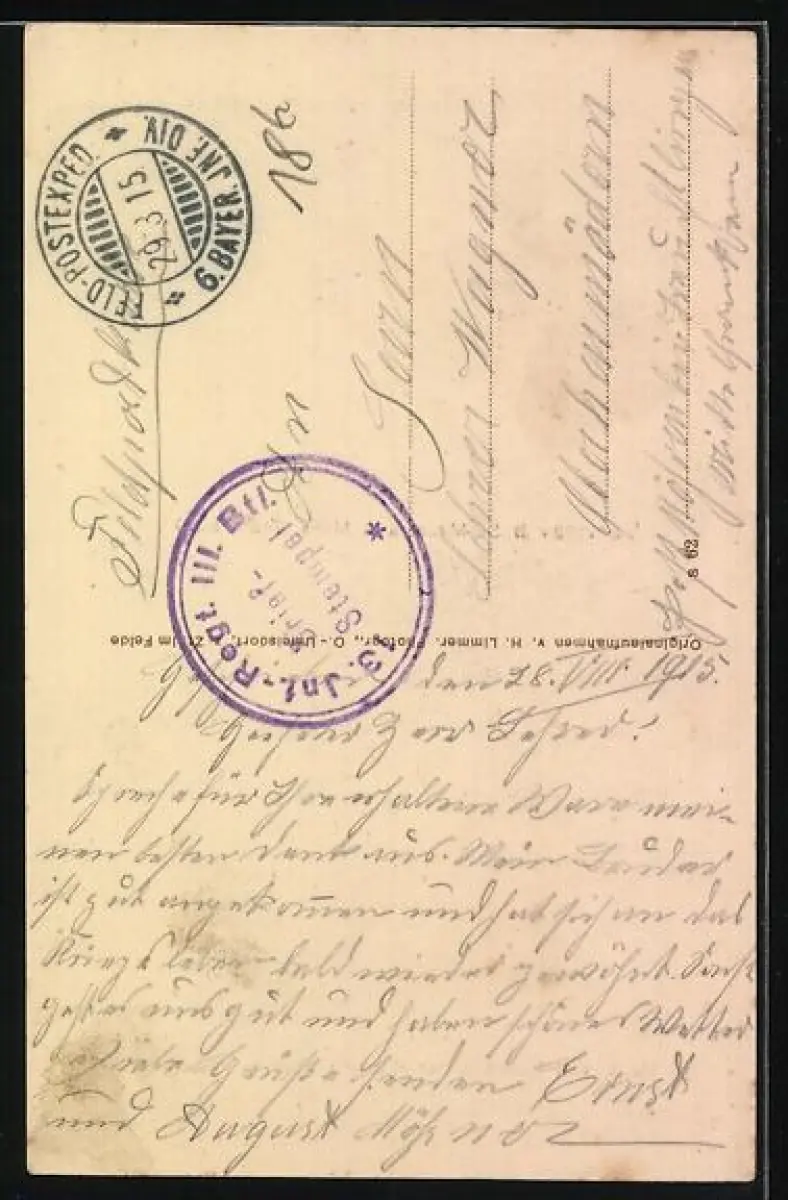 FELD-POSTEXPED.
6. BAYER. JNF. DIV.
29 8 15
186
Feldpost
An
Herrn
Lehrer Wagner
Post
Mittelfranken Bayern
s 62
Jnf.-Regt. III. Btl.
Brief-
Stempel
Originalaufnahmen v. H. Limmer, Photogr., O.-Unffzsdort. Z. im Felde
den 28. VIII. 1915.
Geehrter Herr Lehrer!
Spreche für Ihre erhaltene Ware mei-
nen besten Dank aus. Mein Bruder
ist gut angekommen und hat sich an das
Kriegsleben bald wieder gewöhnt. Sonst
geht es uns gut und haben schönes Wetter
Viele Grüße senden Ernst
und August